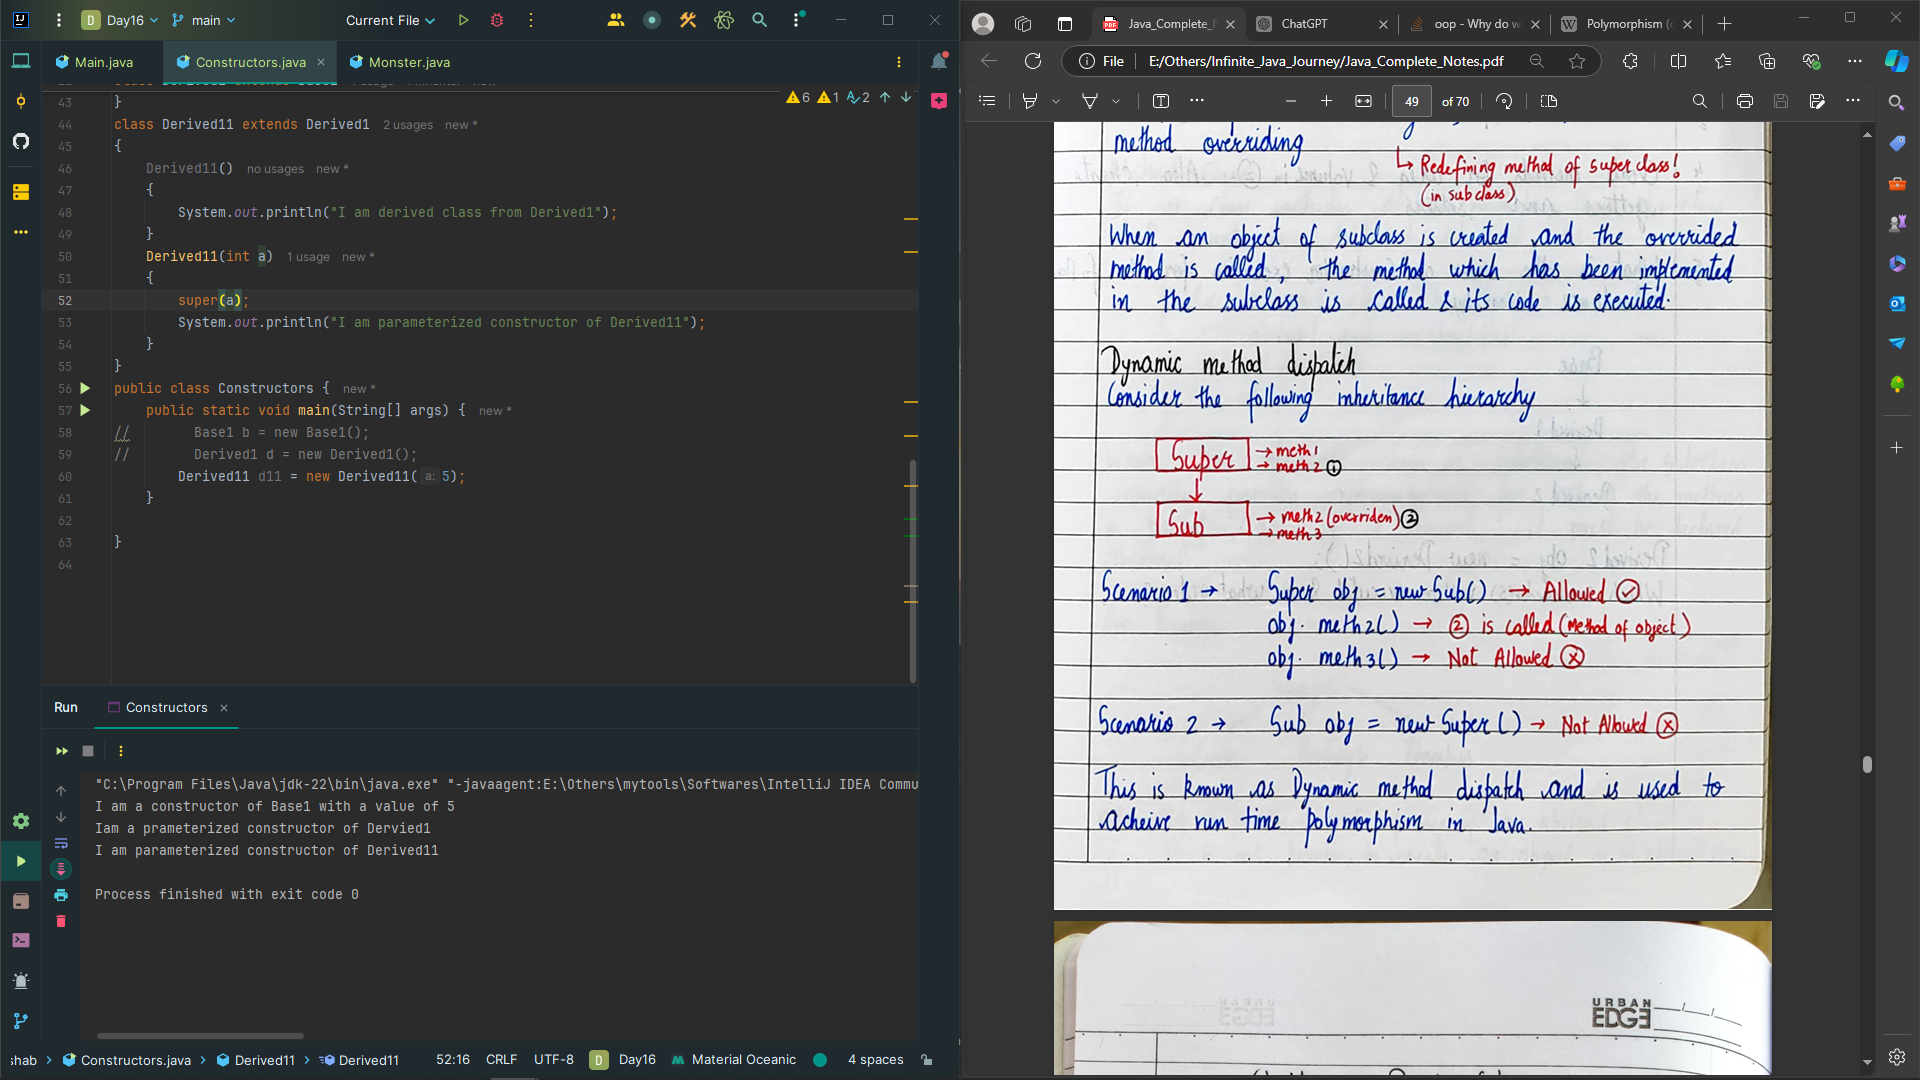 Day16
main
Current File
Main.java
Constructors.java
Monster.java
6 1 2
43 }
44 class Derived11 extends Derived1 2 usages new *
45 {
46 Derived11() no usages new *
47 {
48 System.out.println("I am derived class from Derived1");
49 }
50 Derived11(int a) 1 usage new *
51 {
52 super(a);
53 System.out.println("I am parameterized constructor of Derived11");
54 }
55 }
56 public class Constructors { new *
57 public static void main(String[] args) { new *
58 // Base1 b = new Base1();
59 // Derived1 d = new Derived1();
60 Derived11 d11 = new Derived11( a: 5);
61 }
62
63 }
64
Run Constructors
"C:\Program Files\Java\jdk-22\bin\java.exe" "-javaagent:E:\Others\mytools\Softwares\IntelliJ IDEA Commu
I am a constructor of Base1 with a value of 5
Iam a prameterized constructor of Dervied1
I am parameterized constructor of Derived11
Process finished with exit code 0
shab > Constructors.java > Derived11 > Derived11 52:16 CRLF UTF-8 D Day16 Material Oceanic 4 spaces
Java_Complete_N
ChatGPT
oop - Why do w
Polymorphism (c
File E:/Others/Infinite_Java_Journey/Java_Complete_Notes.pdf
49 of 70
method overriding
↳ Redefining method of super class!
(in subclass)
When an object of subclass is created and the overrided
method is called, the method which has been implemented
in the subclass is called & its code is executed.
Dynamic method dispatch
Consider the following inheritance hierarchy
Super → meth1
→ meth2 ①
Sub → meth2 (overriden) ②
→ meth3
Scenario 1 → Super obj = new Sub() → Allowed
obj. meth2() → ② is called (method of object)
obj. meth3() → Not Allowed
Scenario 2 → Sub obj = new Super() → Not Allowed
This is known as Dynamic method dispatch and is used to
acheive run time polymorphism in Java.
URBAN
EDGE